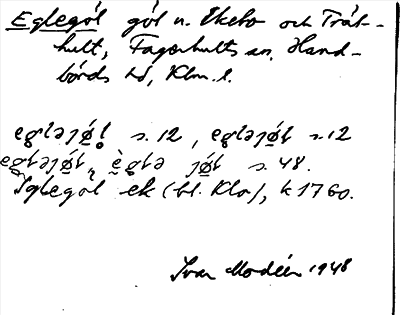 Eglegöl göl n. Ekebo och Tråt-
hult, Fagerhults sn, Hand-
börds hd, Klm. l.
egləjø̜l s. 12, egləjøl s. 12
egləjøl, èglə jøl s. 48.
Iglegöl ek (bl. Kla), k 1760.
Ivar Modéer 1948